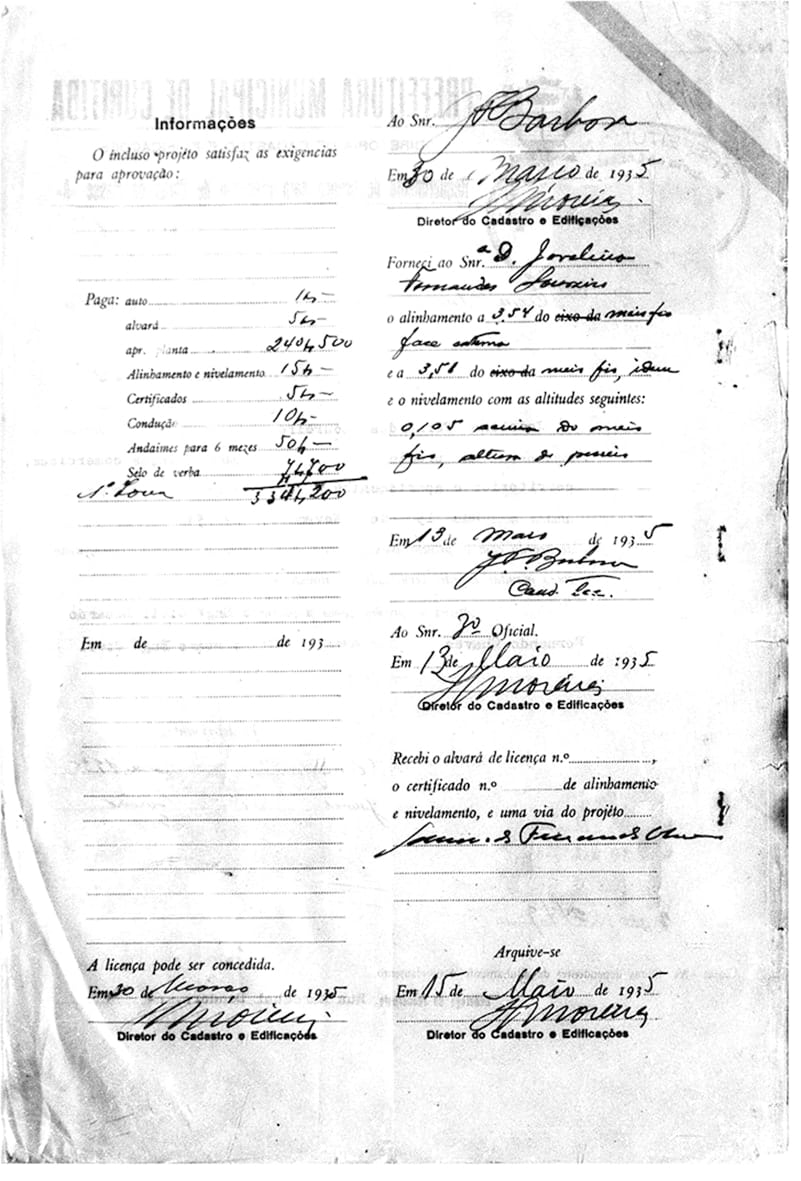 PREFEITURA MUNICIPAL DE CURITIBA
Informações
O incluso projéto satisfaz as exigencias
para aprovação:
Paga: auto 1$-
alvará 5$-
apr. planta 240$500
Alinhamento e nivelamento 15$-
Certificados 5$-
Condução 10$-
Andaimes para 6 mezes 50$-
Selo de verba 7$700
334$200
Em de de 193
A licença pode ser concedida.
Em 30 de Março de 1935
HMoreira
Diretor do Cadastro e Edificações
Ao Snr. Barbosa
Em 30 de Março de 1935
HMoreira
Diretor do Cadastro e Edificações
Forneci ao Snr.ª D.
Fernandes Loureiro
o alinhamento a 3,54 do eixo da meio fio
face externa
e a 3,51 do eixo da meio fio, idem
e o nivelamento com as altitudes seguintes:
0,105 acima do meio
fio, altura do passeio
Em 13 de Maio de 1935
Cand. Tec.
Ao Snr. 3º Oficial.
Em 13 de Maio de 1935
HMoreira
Diretor do Cadastro e Edificações
Recebi o alvará de licença n.º ,
o certificado n.º de alinhamento
e nivelamento, e uma via do projéto
Arquive-se
Em 15 de Maio de 1935
HMoreira
Diretor do Cadastro e Edificações